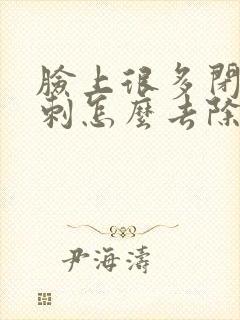 臉上很多閉
刺怎麼去除
尹海濤